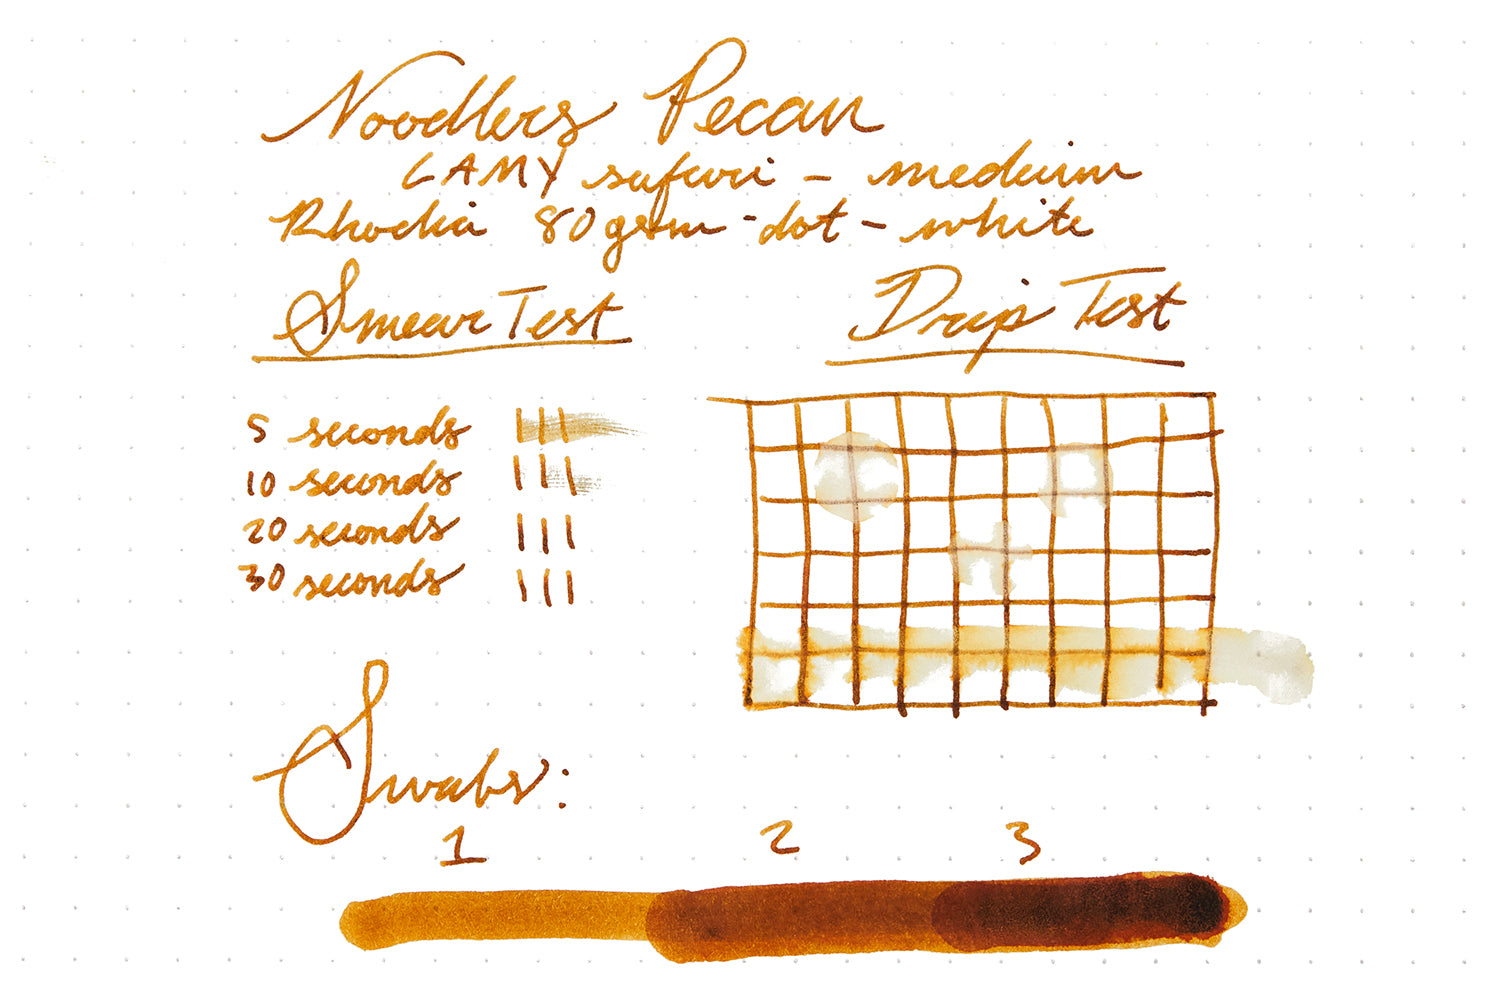 Noodlers Pecan
LAMY safari - medium
Rhodia 80gsm - dot - white
Smear Test
Drip Test
5 seconds
10 seconds
20 seconds
30 seconds
Swabs:
1 2 3